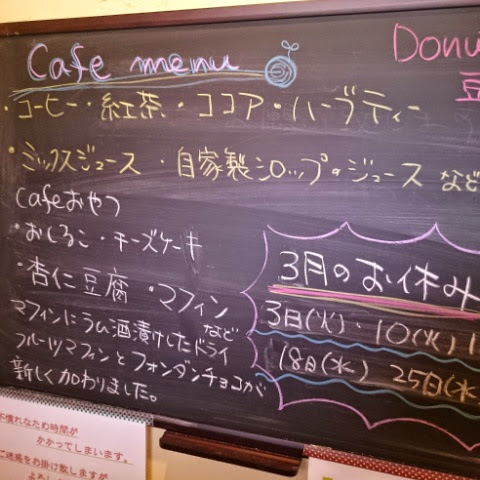 Cafe menu
Donu
豆
・コーヒー・紅茶・ココア・ハーブティー
・ミックスジュース・自家製シロップのジュース など
Cafeおやつ
・おしるこ・チーズケーキ
・杏仁豆腐・マフィン
など
マフィンにラム酒漬けしたドライ
フルーツマフィンとフォンダンチョコが
新しく加わりました。
3月のお休み
3日(火)・10(火) 1
18日(水) 25日(水
不慣れなため時間が
かかってしまいます。
ご迷惑をお掛け致しますが